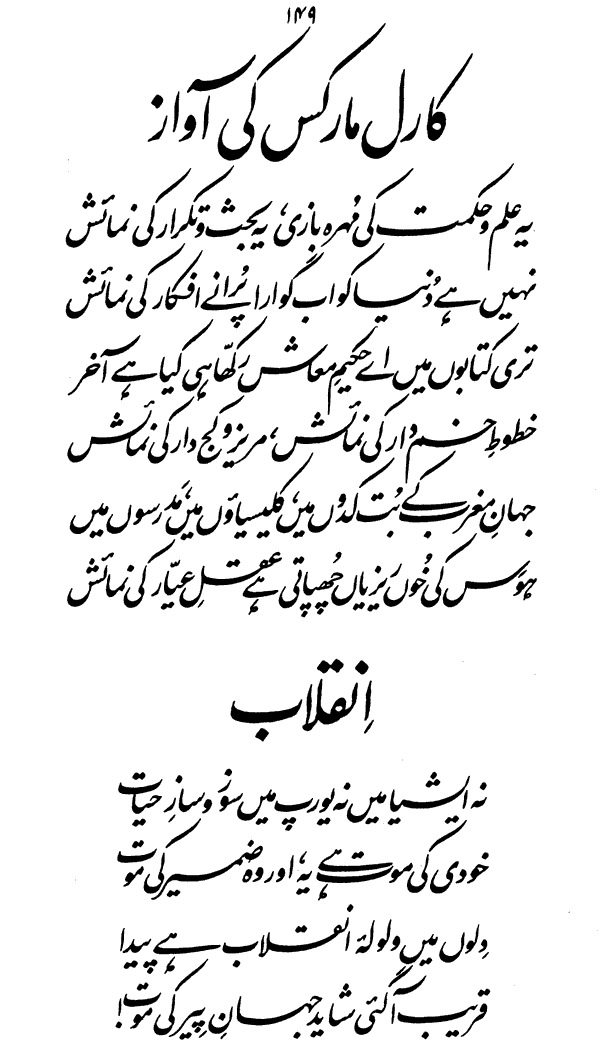 ۱۴۹
کارل مارکس کی آواز
یہ علم و حکمت کی مُہرہ بازی، یہ بحث و تکرار کی نمائش
نہیں ہے دُنیا کو اب گوارا پُرانے افکار کی نمائش
تری کتابوں میں اے حکیمِ معاش رکھّا ہی کیا ہے آخر
خطوطِ خم دار کی نمائش، مریز و کج دار کی نمائش
جہانِ مغرب کے بُت کدوں میں، کلیسیاؤں میں، مَدرسوں میں
ہَوَس کی خُوں ریزیاں چھُپاتی ہے عقلِ عیّار کی نمائش
اِنقلاب
نہ ایشیا میں نہ یورپ میں سوز و سازِ حیات
خودی کی موت ہے یہ، اور وہ ضمیر کی موت
دِلوں میں ولولۂ انقلاب ہے پیدا
قریب آگئی شاید جہانِ پِیر کی موت!